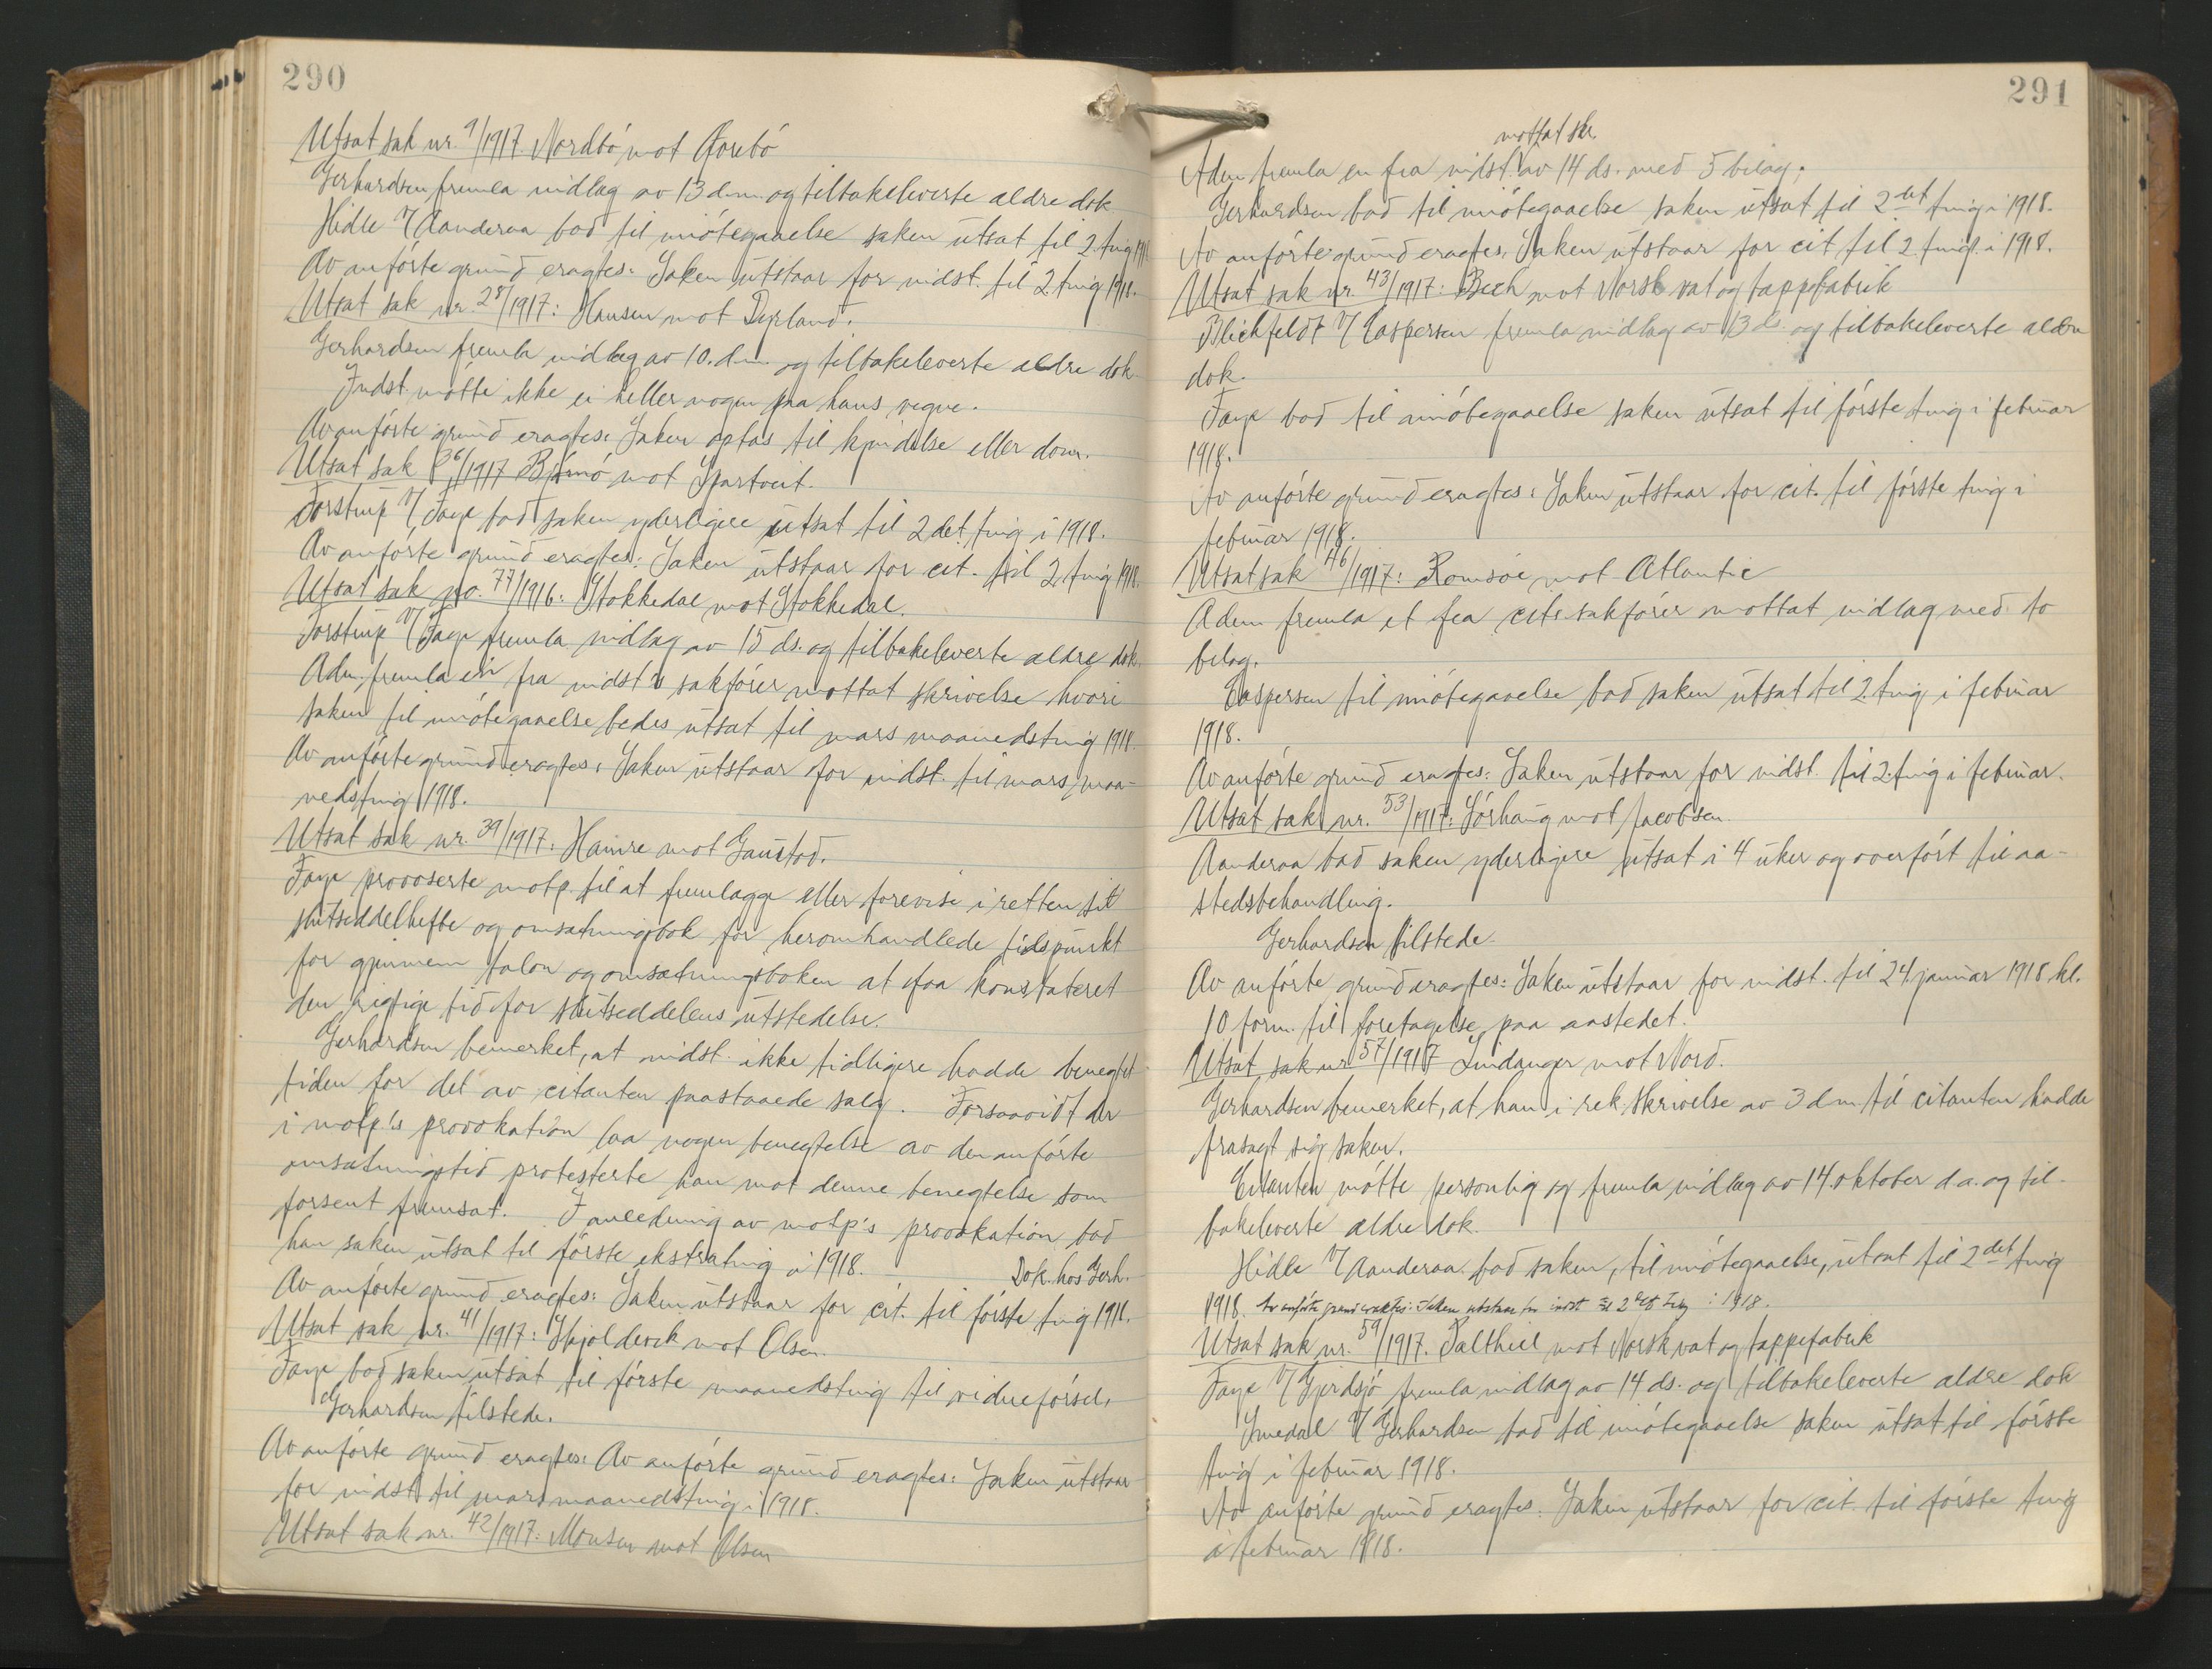 290
Utsat sak nr. 9/1917. Nordbö mot Aarebö
Gerhardsen fremla indlæg av 13 d.m. og tilbakeleverte ældre dok
Hidle v/ Aanderaa bad til imötegaaelse saken utsat til 2. ting 1918
Av anförte grund eragtes: Saken utstaar for indst. til 2 ting 1918.
Utsat sak nr. 28/1917: Hansen mot Dyrland.
Gerhardsen fremla indlæg av 10. d.m. og tilbakeleverte ældre dok
Indst. mötte ikke ei heller nogen paa hans vegne.
Av anförte grund eragtes: Saken optas til kjendelse eller dom.
Utsat sak 36/1917 Björnö mot Spartveit.
Torstrup v/ Faye bad saken yderligere utsat til 2det ting i 1918.
Av anförte grund eragtes: Saken utstaar for cit. til 2 ting 1918.
Utsat sak no. 77/1916: Stokkedal mot Stokkedal.
Torstrup v/ Faye fremla indlæg av 15 ds. og tilbakeleverte ældre dok.
Adm. fremla en fra indst's sakförer mottat skrivelse hvori
saken til imötegaaelse bedes utsat til mars maanedsting 1918.
Av anförte grund eragtes: Saken utstaar for indst. til mars maa-
nedsting 1918.
Utsat sak nr. 39/1917: Hamre mot Gaustad.
Faye provoserte motp. til at fremlægge eller forevise i retten sit
slutseddelhefte og omsætningsbok for heromhandlede tidspunkt
for gjennem talon og omsætningsboken at faa konstateret
den rigtige tid for slutseddelens utstedelse.
Gerhardsen bemerket, at indst. ikke tidligere hadde benegtet
tiden for det av citanten paastaaede salg. Forsaavidt der
i motp's provokation laa nogen benegtelse av den anförte
omsætningstid protesterte han mot denne benegtelse som
forsent fremsat. I anledning av motp's provokation bad
han saken utsat til förste ekstrating i 1918. Dok. hos Gerh.
Av anförte grund eragtes: Saken utstaar for cit. til förste ting 1918.
Utsat sak nr. 41/1917: Skjoldevik mot Olsen.
Faye bad saken utsat til förste maanedsting til vidneförsel.
Gerhardsen tilstede.
Av anförte grund eragtes: Av anförte grund eragtes: Saken utstaar
for indst. til mars maanedsting i 1918.
Utsat sak nr. 42/1917: Monsen mot Olsen
291
mottat skr.
Adm. fremla en fra indst. av 14 ds. med 5 bilag.
Gerhardsen bad til imötegaaelse saken utsat til 2det ting i 1918.
Av anförte grund eragtes: Saken utstaar for cit til 2 ting i 1918.
Utsat sak nr. 43/1917: Bech mot Norsk vat og tæppefabrik
Blichfeldt v/ Caspersen fremla indlæg av 13 ds. og tilbakeleverte ældre
dok.
Faye bad til imötegaaelse saken utsat til förste ting i februar
1918.
Av anförte grund eragtes: Saken utstaar for cit. til förste ting i
februar 1918.
Utsat sak 46/1917: Romsöe mot Atlantic
Adm. fremla et fra cits. sakförer mottat indlæg med to
bilag.
Caspersen til imötegaaelse bad saken utsat til 2. ting i februar
1918.
Av anförte grund eragtes: Saken utstaar for indst. til 2. ting i februar.
Utsat sak nr. 53/1917: Sörhaug mot Jacobsen.
Aanderaa bad saken yderligere utsat i 4 uker og overfört til aa-
stedsbehandling.
Gerhardsen tilstede.
Av anförte grund eragtes: Saken utstaar for indst. til 24. januar 1918 kl.
10 form. til foretagelse paa aastedet.
Utsat sak nr 57/1917 Lindanger mot Nord.
Gerhardsen bemerket, at han i rek. skrivelse av 3 d.m. til citanten hadde
frasagt sig saken.
Citanten mötte personlig og fremla indlæg av 14. oktober d.a. og til-
bakeleverte ældre dok.
Hidle v/ Aanderaa bad saken, til imötegaaelse, utsat til 2det ting
1918. Av anförte grund eragtes: Saken utstaar for indst til 2det ting i 1918.
Utsat sak nr. 59/1917. Palthiel mot Norsk vat og tæppefabrik
Faye v/ Gjerdsjö fremla indlæg av 14 ds. og tilbakeleverte ældre dok
Smedal v/ Gerhardsen bad til imötegaaelse saken utsat til förste
ting i februar 1918.
Av anförte grund eragtes: Saken utstaar for cit. til förste ting
i februar 1918.